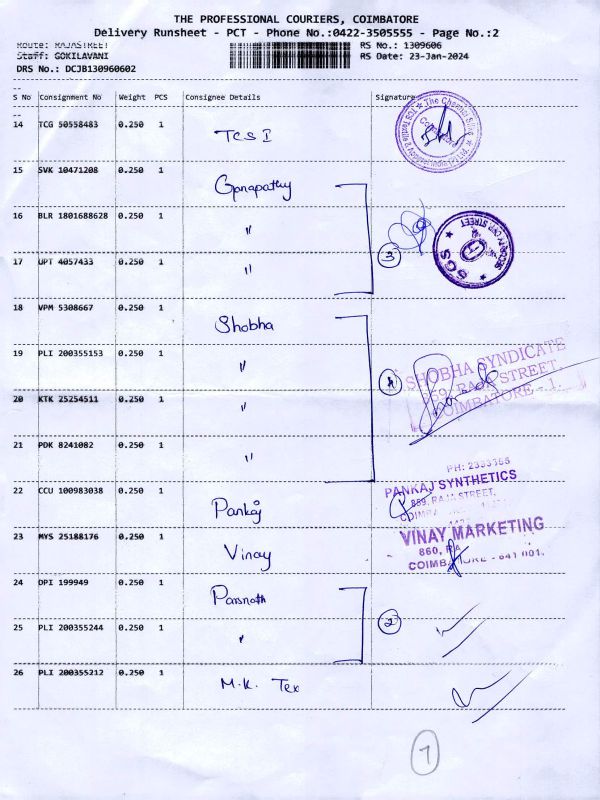 THE PROFESSIONAL COURIERS, COIMBATORE
Delivery Runsheet - PCT - Phone No.:0422-3505555 - Page No.:2
Route: RAJASTREET
RS No.: 1309606
Staff: GOKILAVANI
RS Date: 23-Jan-2024
DRS No.: DCJB130960602
S No Consignment No Weight PCS Consignee Details Signature
14 TCG 50558483 0.250 1 TCS I
15 SVK 10471208 0.250 1 Ganapathy
16 BLR 1801688628 0.250 1 "
17 UPT 4057433 0.250 1 " 3
18 VPM 5308667 0.250 1 Shobha
19 PLI 200355153 0.250 1 "
SHOBHA SYNDICATE
RAJA STREET,
COIMBATORE - 1.
20 KTK 25254511 0.250 1 " 4
21 PDK 8241082 0.250 1 "
22 CCU 100983038 0.250 1 Pankaj
PANKAJ SYNTHETICS
859, RAJA STREET,
23 MYS 25188176 0.250 1 Vinay
VINAY MARKETING
860,
641 001.
24 DPI 199949 0.250 1 Parsnath
25 PLI 200355244 0.250 1 " 2
26 PLI 200355212 0.250 1 M.K. Tex
7